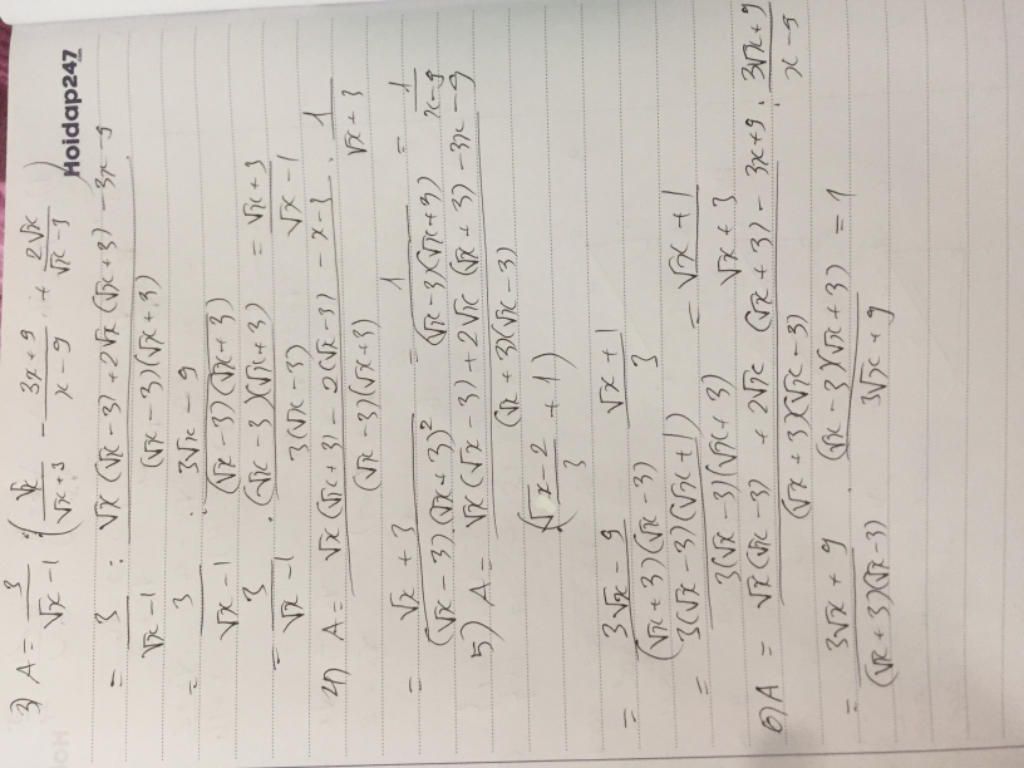 Hoidap247
3) A = 3/(√x - 1) : (√x/(√x + 3) - (3x + 9)/(x - 9) + 2√x/(√x - 3))
= 3/(√x - 1) : (√x(√x - 3) + 2√x(√x + 3) - 3x - 9)/((√x - 3)(√x + 3))
= 3/(√x - 1) : (3√x - 9)/((√x - 3)(√x + 3))
= 3/(√x - 1) . ((√x - 3)(√x + 3))/(3(√x - 3)) = (√x + 3)/(√x - 1)
4) A = (√x(√x + 3) - 2(√x - 3) - x - 3)/((√x - 3)(√x + 3)) . 1/(√x + 3)
= (√x + 3)/((√x - 3).(√x + 3)²) = 1/((√x - 3)(√x + 3)) = 1/(x - 9)
5) A = (√x(√x - 3) + 2√x(√x + 3) - 3x - 9)/((√x + 3)(√x - 3))
((√x - 2)/3 + 1)
= (3√x - 9)/((√x + 3)(√x - 3)) (√x + 1)/3
= (3(√x - 3)(√x + 1))/(3(√x - 3)(√x + 3)) = (√x + 1)/(√x + 3)
6) A = (√x(√x - 3) + 2√x (√x + 3) - 3x + 9)/((√x + 3)(√x - 3)) : (3√x + 9)/(x - 9)
= (3√x + 9)/((√x + 3)(√x - 3)) . ((√x - 3)(√x + 3))/(3√x + 9) = 1